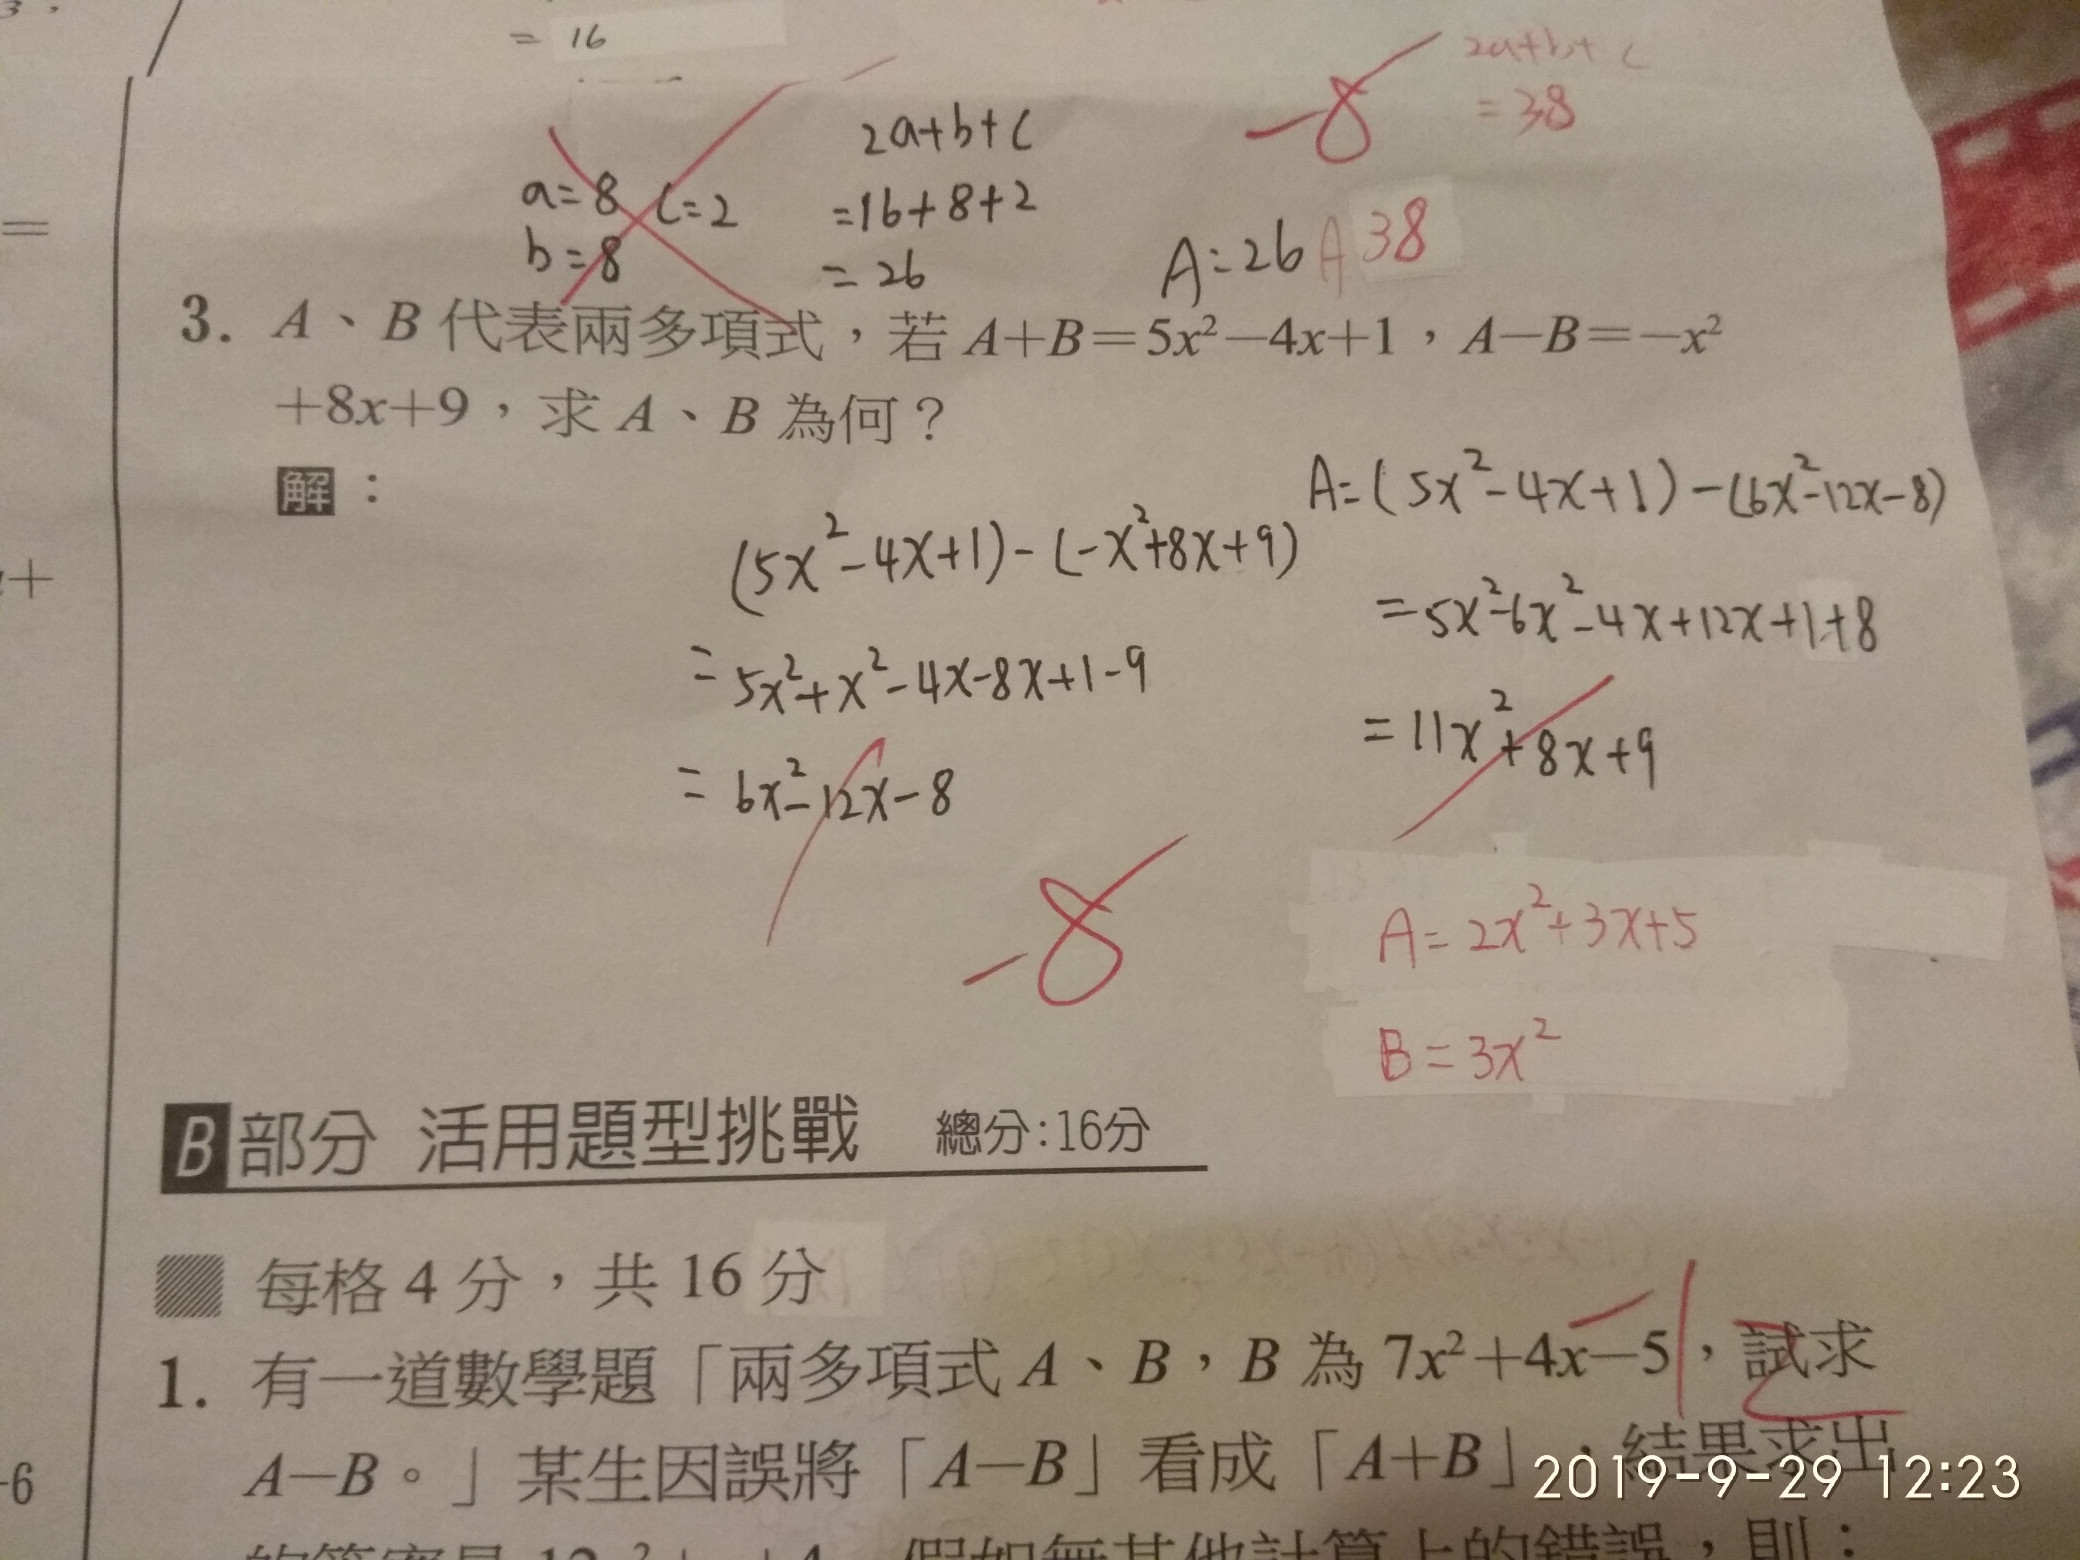 = 16
2a+b+c
=38
-8
a=8 c=2
b=8
2a+b+c
=16+8+2
= 26
A=26 A 38
3. A、B 代表兩多項式，若 A+B=5x²-4x+1，A-B=-x²
+8x+9，求 A、B 為何？
解：
(5x²-4x+1)-(-x²+8x+9)
=5x²+x²-4x-8x+1-9
=6x²-12x-8
A=(5x²-4x+1)-(6x²-12x-8)
=5x²-6x²-4x+12x+1+8
=11x²+8x+9
-8
A=2x²+3x+5
B=3x²
B部分 活用題型挑戰 總分：16分
每格 4 分，共 16 分
1. 有一道數學題「兩多項式 A、B，B 為 7x²+4x-5，試求
A-B。」某生因誤將「A-B」看成「A+B」，結果求出
-6
2019-9-29 12:23